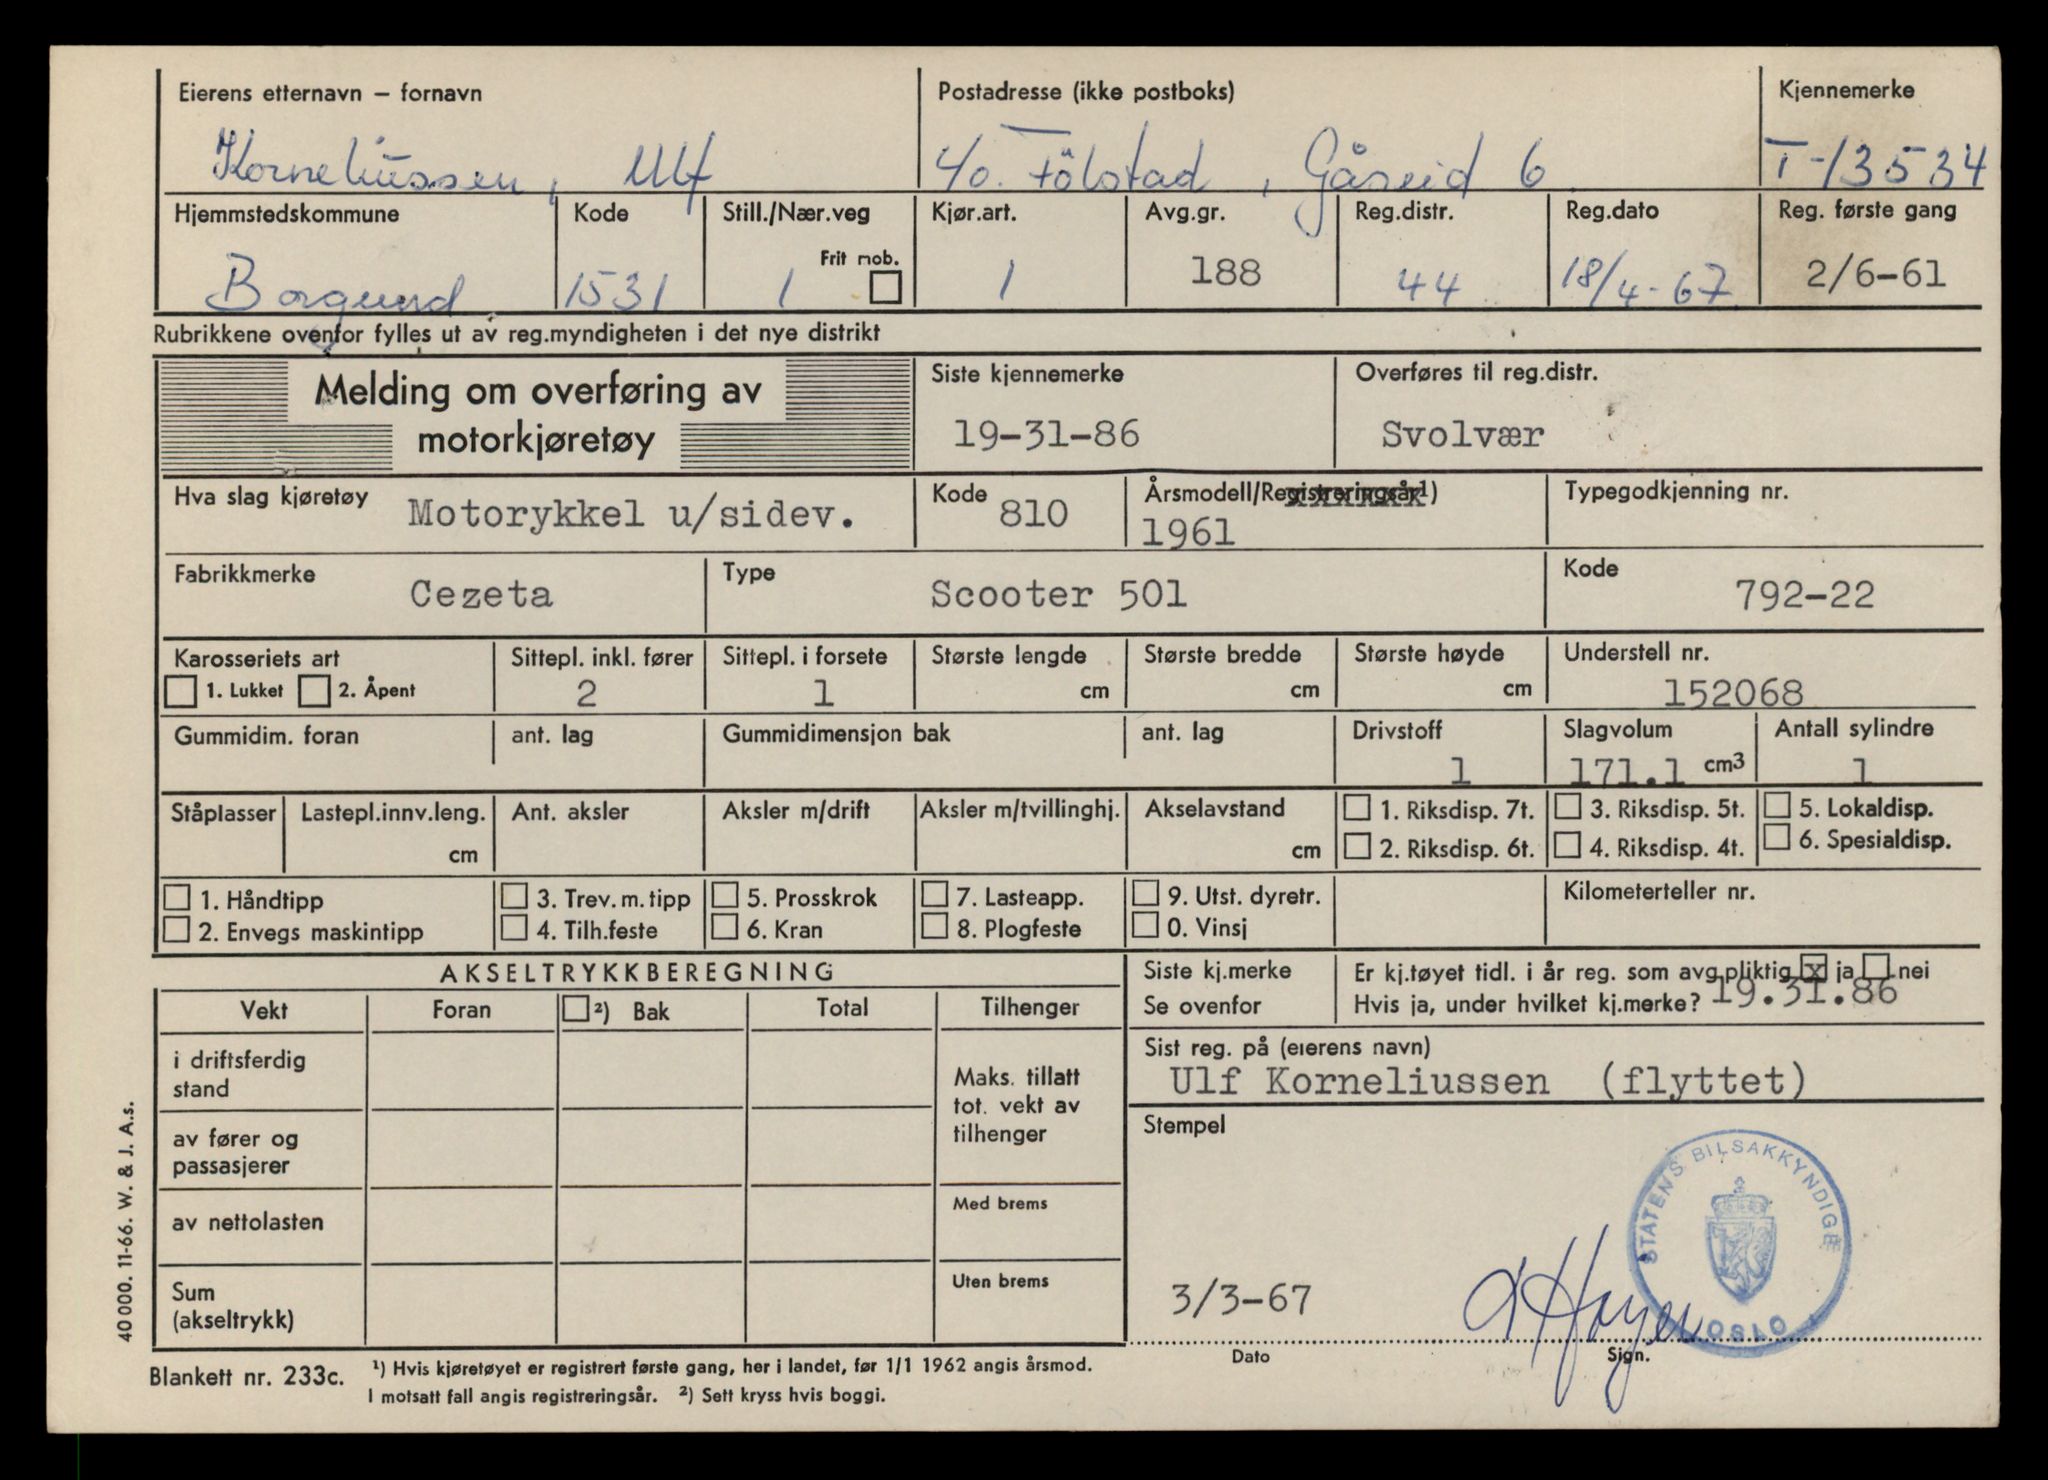 Eierens etternavn – fornavn
Postadresse (ikke postboks)
Kjennemerke
Korneliussen, Ulf
Fölstad, Gåseid 6
T-13534
Hjemmstedskommune
Kode
Still./Nær.veg
Kjør.art.
Avg.gr.
Reg.distr.
Reg.dato
Reg. første gang
Frit mob.
Borgund
1531
1
1
188
44
18/4-67
2/6-61
Rubrikkene ovenfor fylles ut av reg.myndigheten i det nye distrikt
Melding om overføring av
motorkjøretøy
Siste kjennemerke
19-31-86
Overføres til reg.distr.
Svolvær
Hva slag kjøretøy
Motorykkel u/sidev.
Kode
810
Årsmodell/Registreringsår¹)
1961
Typegodkjenning nr.
Fabrikkmerke
Cezeta
Type
Scooter 501
Kode
792-22
Karosseriets art
1. Lukket
2. Åpent
Sittepl. inkl. fører
2
Sittepl. i forsete
1
Største lengde
cm
Største bredde
cm
Største høyde
cm
Understell nr.
152068
Gummidim. foran
ant. lag
Gummidimensjon bak
ant. lag
Drivstoff
1
Slagvolum
171.1 cm3
Antall sylindre
1
Ståplasser
Lastepl.innv.leng.
cm
Ant. aksler
Aksler m/drift
Aksler m/tvillinghj.
Akselavstand
cm
1. Riksdisp. 7t.
2. Riksdisp. 6t.
3. Riksdisp. 5t.
4. Riksdisp. 4t.
5. Lokaldisp.
6. Spesialdisp.
1. Håndtipp
2. Envegs maskintipp
3. Trev. m. tipp
4. Tilh.feste
5. Prosskrok
6. Kran
7. Lasteapp.
8. Plogfeste
9. Utst. dyretr.
0. Vinsj
Kilometerteller nr.
AKSELTRYKKBEREGNING
Vekt
Foran
²) Bak
Total
Tilhenger
i driftsferdig
stand
av fører og
passasjerer
av nettolasten
Sum
(akseltrykk)
Maks. tillatt
tot. vekt av
tilhenger
Med brems
Uten brems
Siste kj.merke
Se ovenfor
Er kj.tøyet tidl. i år reg. som avg.pliktig x ja nei
Hvis ja, under hvilket kj.merke? 19.31.86
Sist reg. på (eierens navn)
Ulf Korneliussen (flyttet)
Stempel
STATENS BILSAKKYNDIGE
OSLO
3/3-67
Dato
Sign.
40 000. 11-66. W. & J. A.s.
Blankett nr. 233c.
¹) Hvis kjøretøyet er registrert første gang, her i landet, før 1/1 1962 angis årsmod.
I motsatt fall angis registreringsår. ²) Sett kryss hvis boggi.